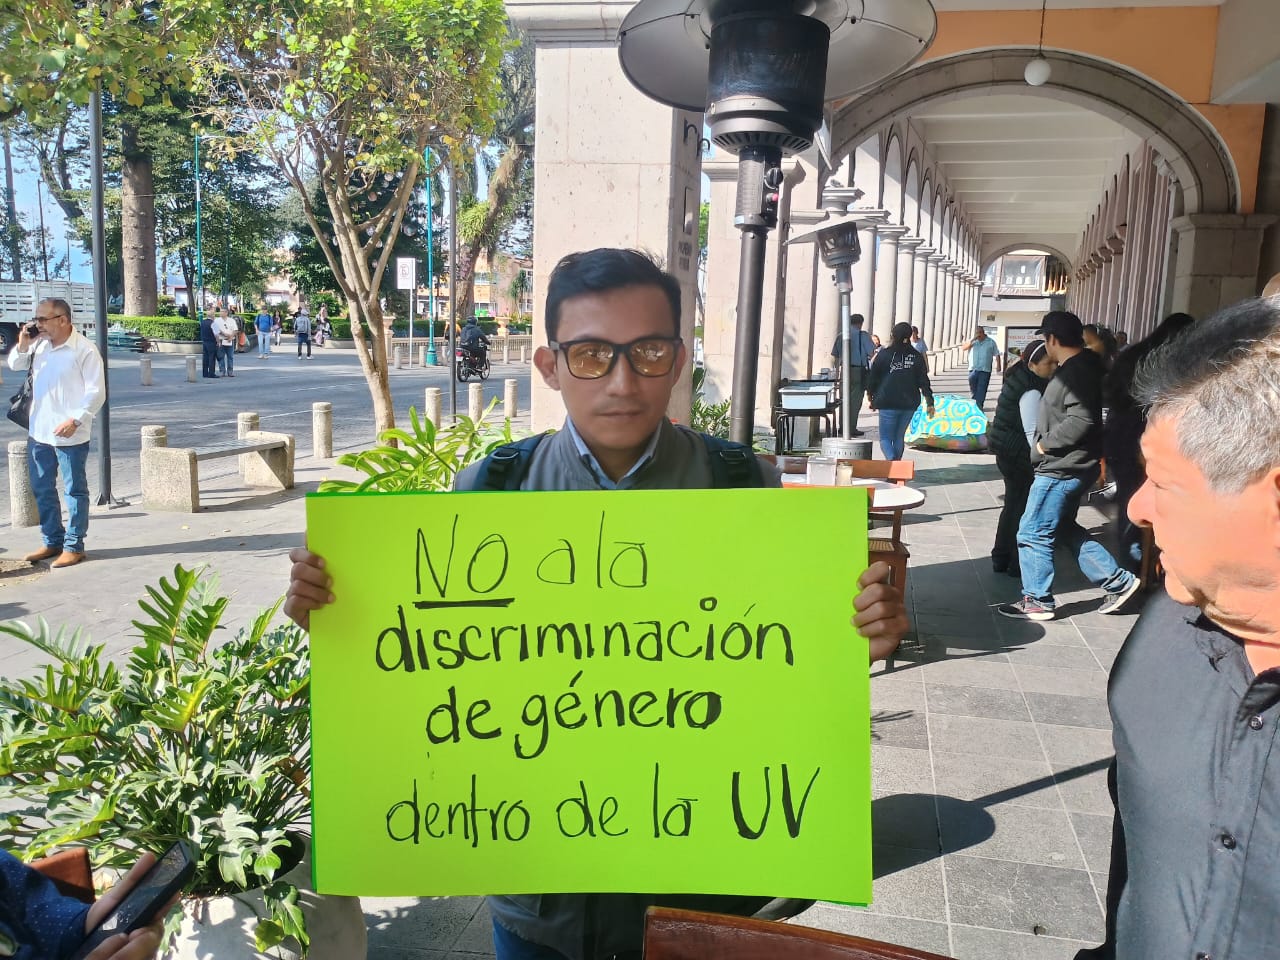 NO a la
discriminación
de género
dentro de la UV